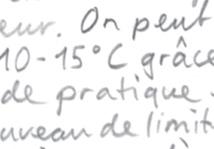 eur. On peut
10-15°C grâce
de pratique.
uveau de limit